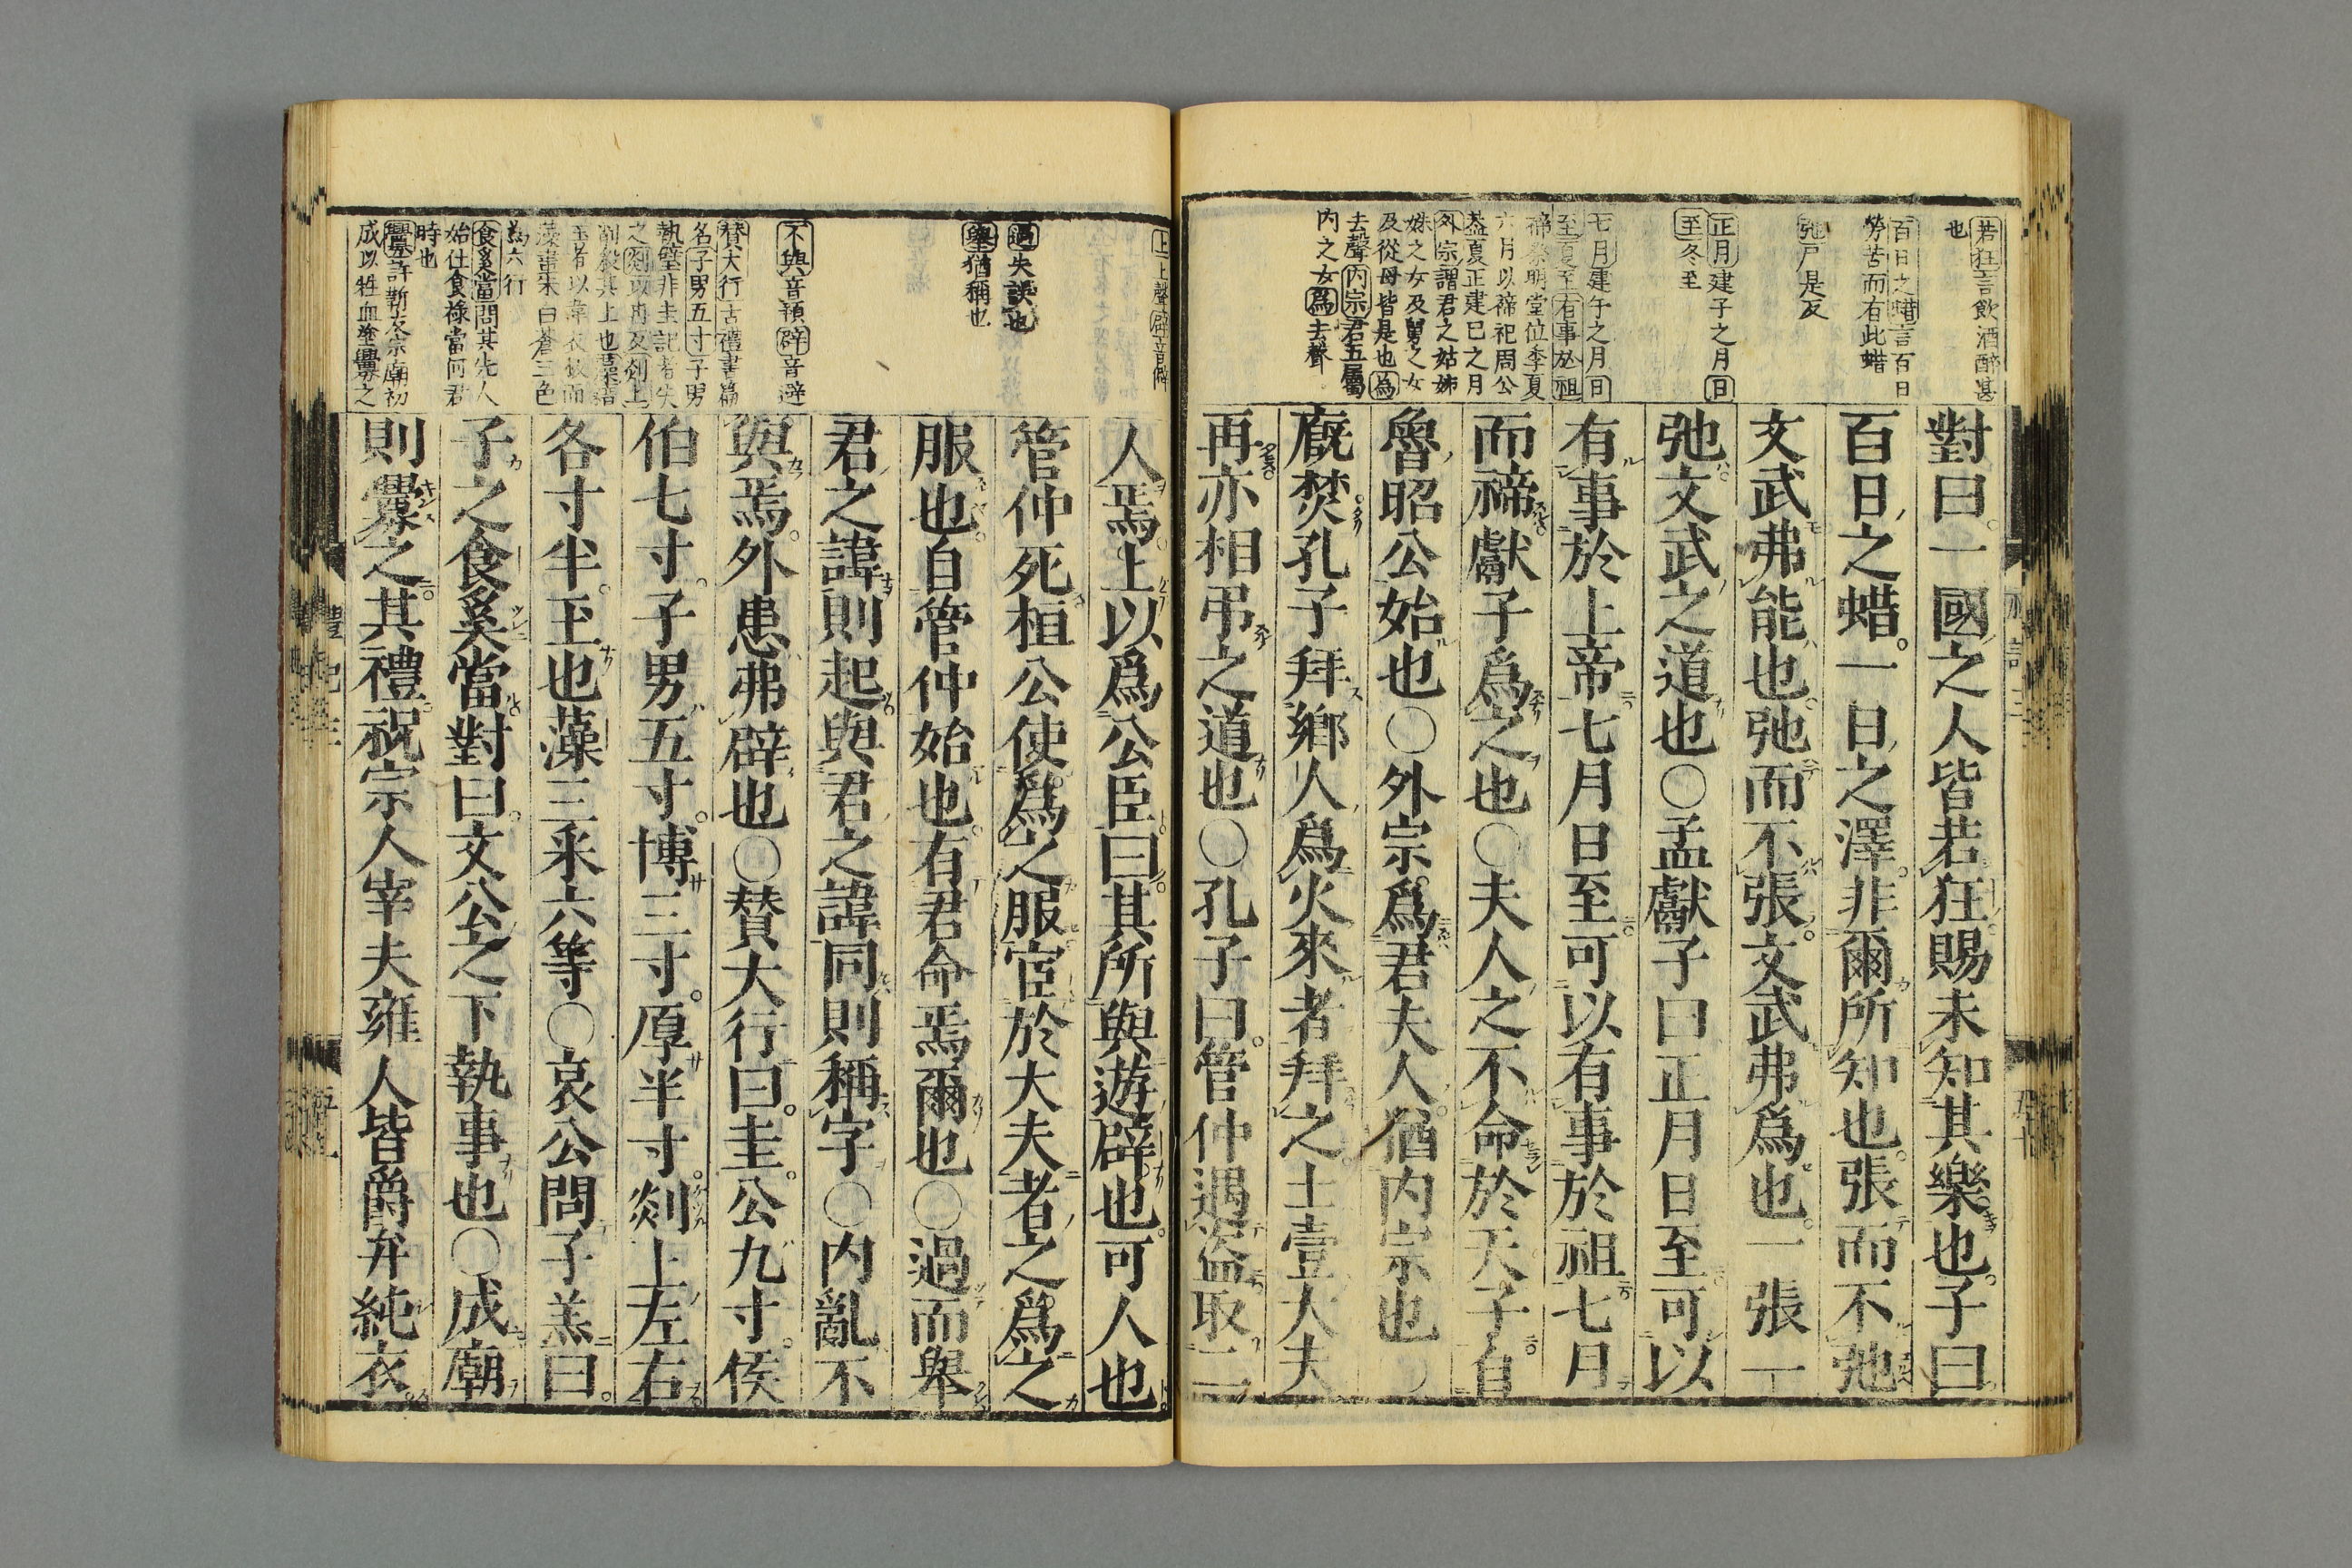 若狂言飲酒醉甚
也
百日之蜡言百日
勞苦而有此蜡
弛尸是反
正月建子之月日
至冬至
七月建午之月日
至夏至有事於祖
禘祭明堂位季夏
六月以禘祀周公
蓋夏正建巳之月
外宗謂君之姑姊
妹之女及舅之女
及從母皆是也為
去聲內宗君五屬
內之女為去聲
對曰一國之人皆若狂賜未知其樂也子曰
百日之蜡一日之澤非爾所知也張而不弛
文武弗能也弛而不張文武弗爲也一張一
弛文武之道也○孟獻子曰正月日至可以
有事於上帝七月日至可以有事於祖七月
而禘獻子爲之也○夫人之不命於天子自
魯昭公始也○外宗爲君夫人猶內宗也○
廐焚孔子拜鄉人爲火來者拜之士壹大夫
再亦相弔之道也○孔子曰管仲遇盜取二
上上聲辟音僻
過失誤也
舉猶稱也
不與音預辟音避
贊大行古禮書篇
名子男五寸子男
執璧非圭記者失
之剡以冉反剡上
削殺其上也藻藉
玉者以韋衣板而
藻畫朱白蒼三色
爲六行
食奚當問其先人
始仕食祿當何君
時也
釁許靳反宗廟初
成以牲血塗釁之
人焉上以爲公臣曰其所與遊辟也可人也
管仲死桓公使爲之服宦於大夫者之爲之
服也自管仲始也有君命焉爾也○過而舉
君之諱則起與君之諱同則稱字○內亂不
與焉外患弗辟也○贊大行曰圭公九寸侯
伯七寸子男五寸博三寸厚半寸剡上左右
各寸半玉也藻三采六等○哀公問子羔曰
子之食奚當對曰文公之下執事也○成廟
則釁之其禮祝宗人宰夫雍人皆爵弁純衣
禮記三